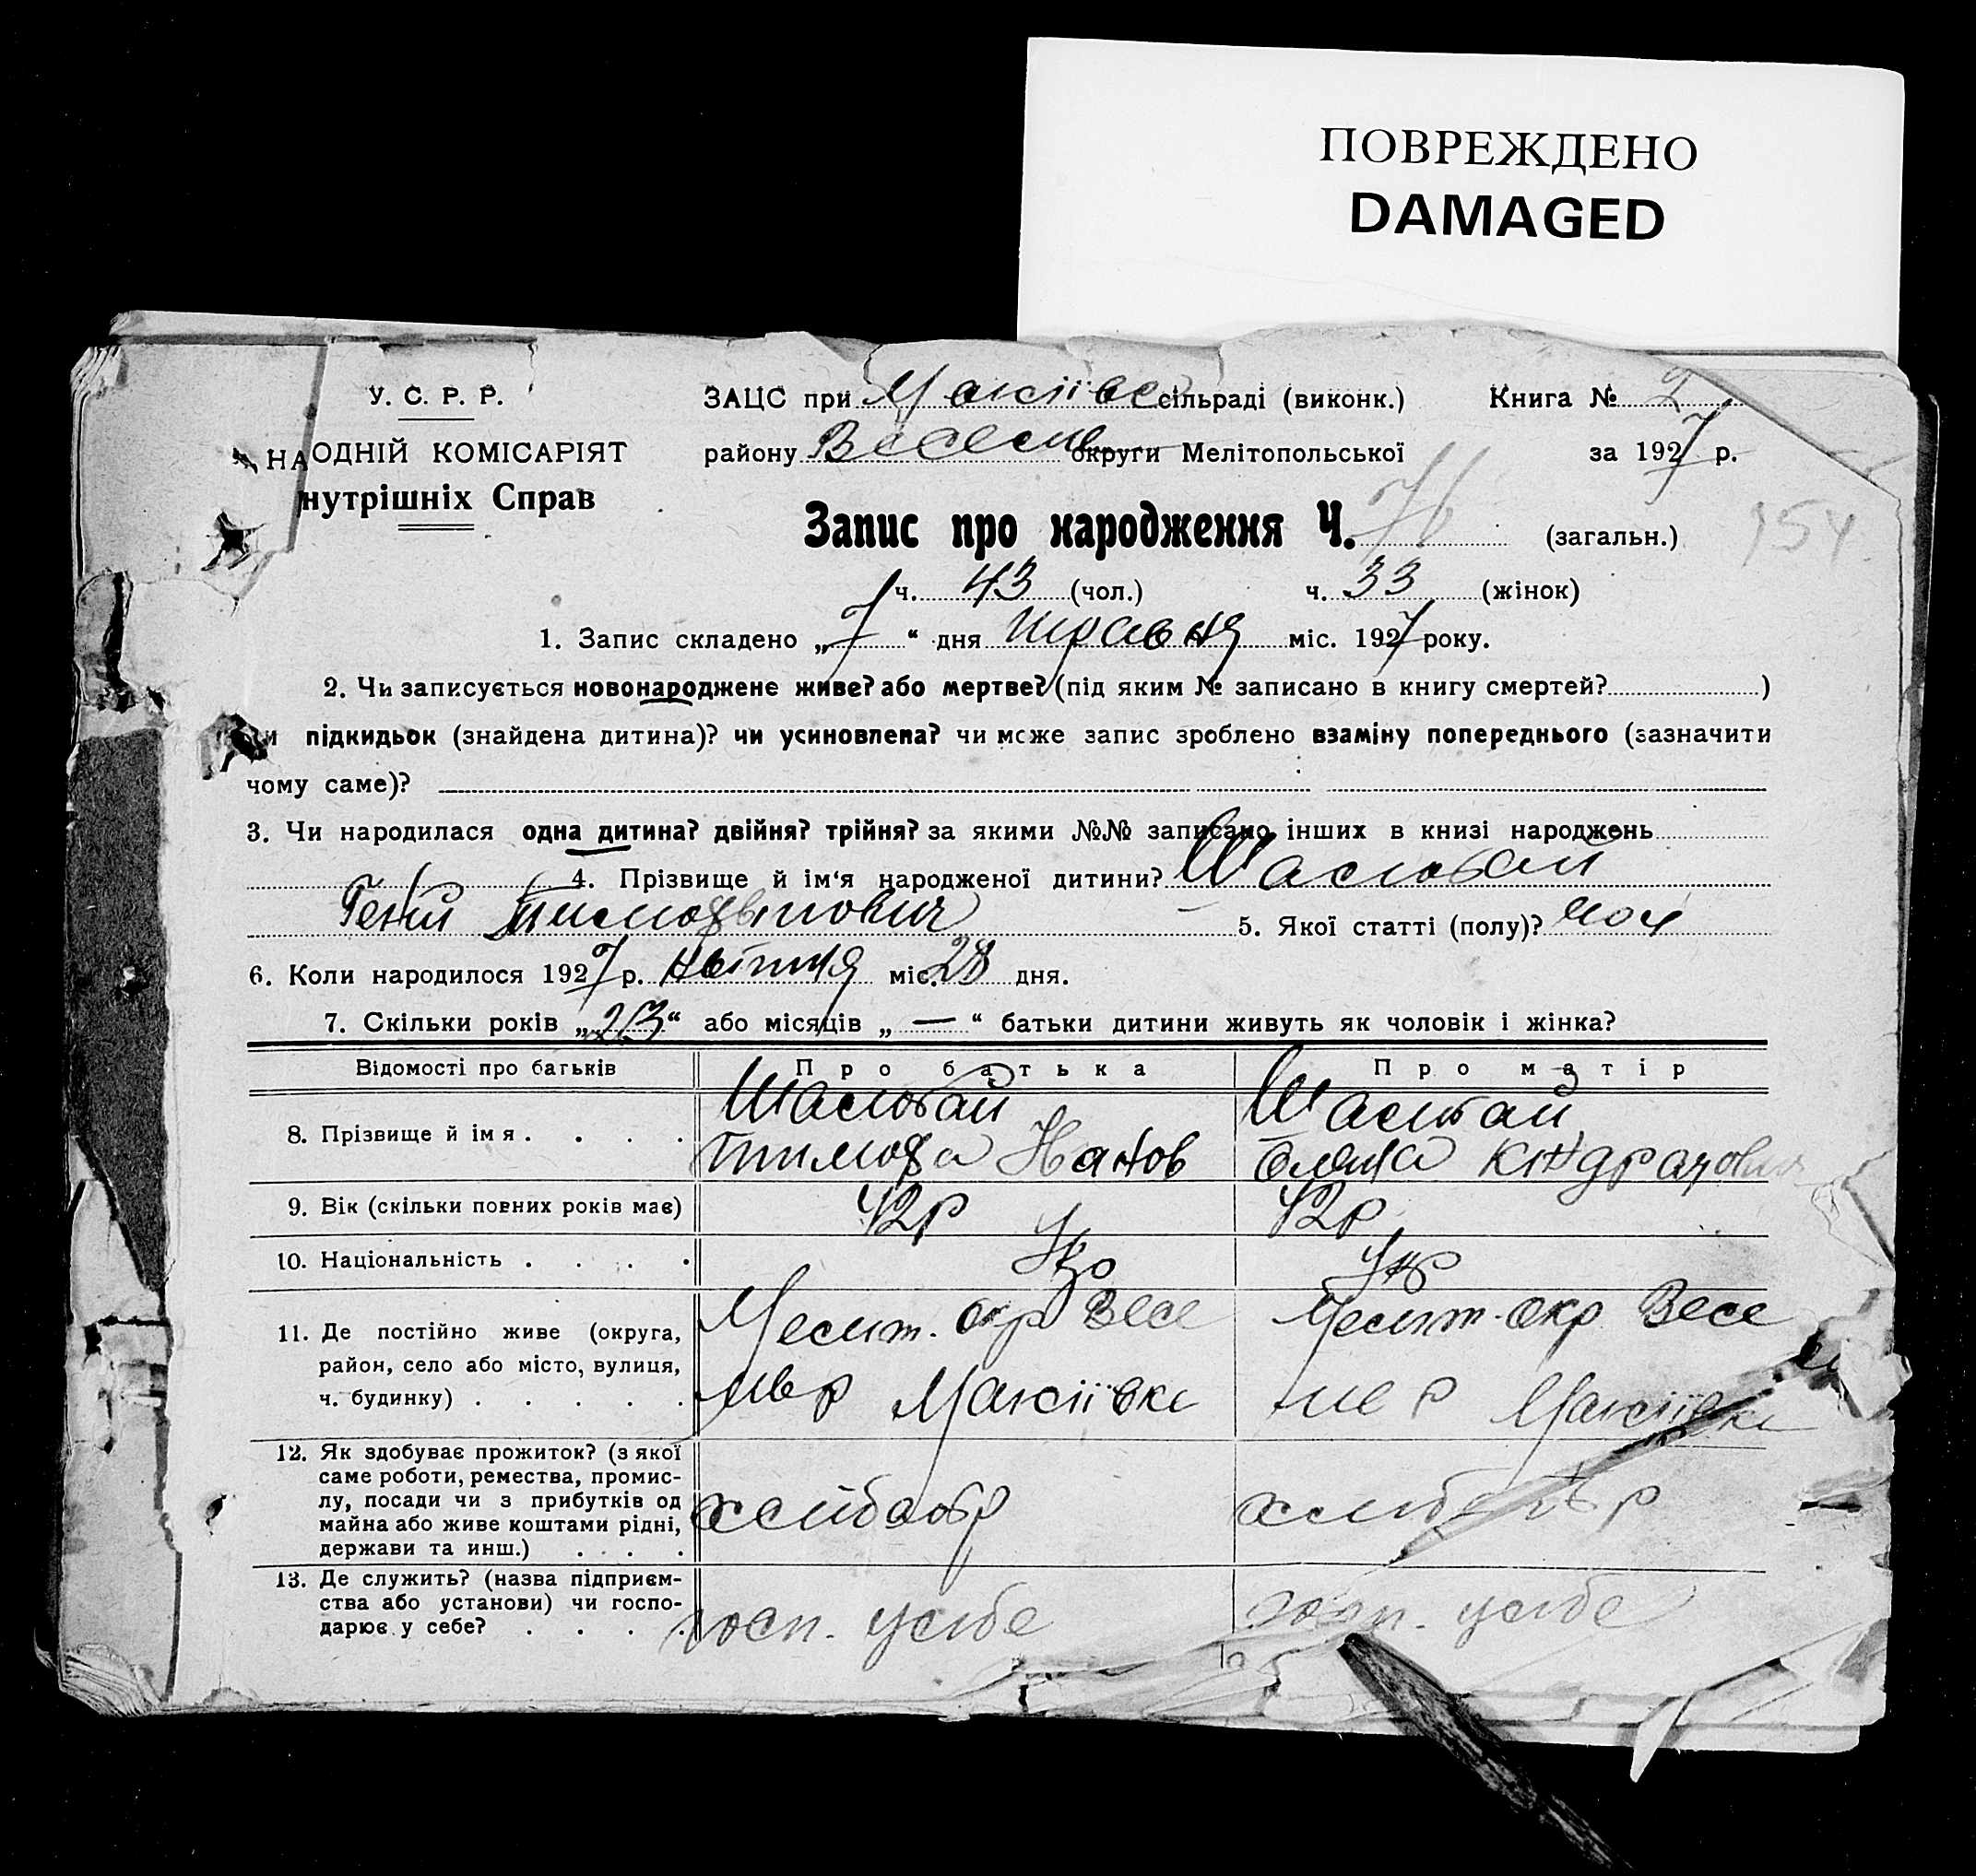 ПОВРЕЖДЕНО
DAMAGED
У. С. Р. Р.
НАОДНІЙ КОМІСАРІЯТ
нутрішніх Справ
ЗАЦС при Макіївс сільраді (виконк.) Книга № 2
району Веселе округи Мелітопольської за 1927 р.
Запис про народження Ч. 76 (загальн.) 154
ч. 43 (чол.) ч. 33 (жінок)
1. Запис складено „7“ дня травня міс. 1927 року.
2. Чи записується новонароджене живе? або мертве? (під яким № записано в книгу смертей? )
чи підкидьок (знайдена дитина)? чи усиновлена? чи може запис зроблено взаміну попереднього (зазначити
чому саме)?
3. Чи народилася одна дитина? двійня? трійня? за якими №№ записано інших в книзі народжень
4. Прізвище й ім‘я народженої дитини?
5. Якої статті (полу)? чол
6. Коли народилося 1927 р. квітня міс. 28 дня.
7. Скільки років „23“ або місяців „ — “ батьки дитини живуть як чоловік і жінка?
Відомості про батьків Про батька Про матір
8. Прізвище й імя . . . .
Тимофа Иванов
9. Вік (скільки повних років має) 42р 42р
10. Національність . . . . Укр Укр
11. Де постійно живе (округа, Мелит. окр Весе Мелит. окр Весе
район, село або місто, вулиця,
ч. будинку) . . . . . Макіївка Макіївка
12. Як здобуває прожиток? (з якої
саме роботи, ремества, промис-
лу, посади чи з прибутків од хлібообр
майна або живе коштами рідні,
держави та инш.) . . . .
13. Де служить? (назва підприєм-
ства або установи) чи госпо- госп. усебе госп. усебе
дарює у себе? . . . .